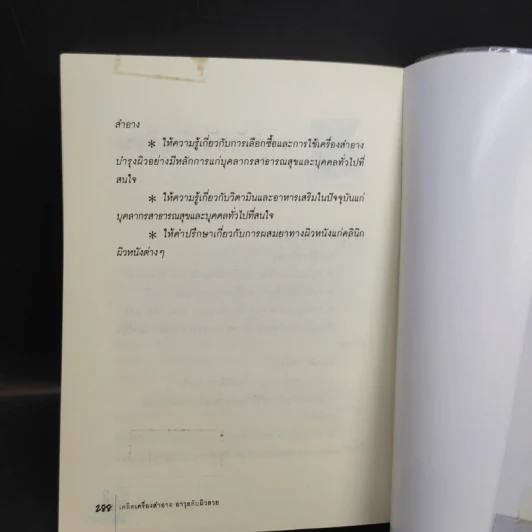 สำอาง
* ให้ความรู้เกี่ยวกับการเลือกซื้อและการใช้เครื่องสำอาง
บำรุงผิวอย่างมีหลักการแก่บุคลากรสาธารณสุขและบุคคลทั่วไปที่
สนใจ
* ให้ความรู้เกี่ยวกับวิตามินและอาหารเสริมในปัจจุบันแก่
บุคลากรสาธารณสุขและบุคคลทั่วไปที่สนใจ
* ให้คำปรึกษาเกี่ยวกับการผสมยาทางผิวหนังแก่คลินิก
ผิวหนังต่างๆ
เคล็ดเครื่องสำอาง อาวุธลับผิวสวย